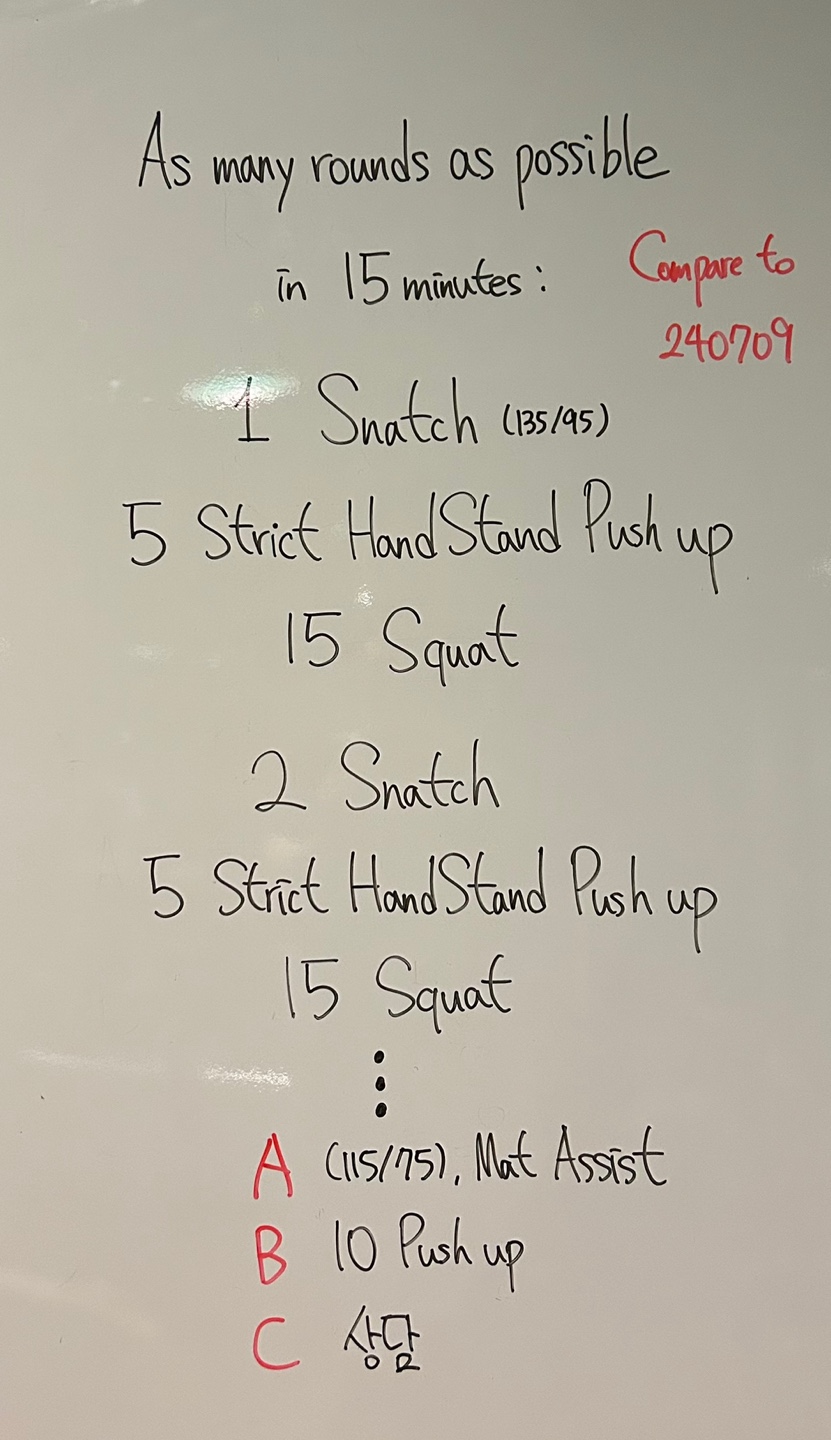 As many rounds as possible
in 15 minutes:
Compare to
240709
1 Snatch (135/95)
5 Strict HandStand Push up
15 Squat
2 Snatch
5 Strict HandStand Push up
15 Squat
⋮
A (115/75), Mat Assist
B 10 Push up
C 상담